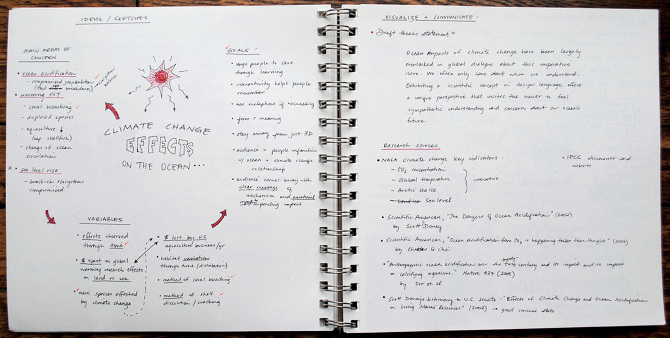 IDEAS / SKETCHES
MAIN AREAS OF
CONCERN
ocean acidification
warming SST
coral bleaching
displaced species
aquaculture
change of ocean
circulation
sea level rise
brackish ecosystems
compromised
CLIMATE CHANGE
EFFECTS
ON THE OCEAN...
GOALS:
urge people to care
through learning
interactivity helps people
remember
form = meaning
stay away from just 3D
audience = people unfamiliar
w/ ocean + climate change
relationship
audience comes away with
clear message of
mechanism and
impending impact
VARIABLES
effects observed
through time
$ spent on global
warming research efforts
on land vs sea
main species affected by
climate change
$ lost by U.S.
aquaculture business/yr
habitat variation
through time (distribution)
method of coral bleaching
method of shell
dissolution / weakening
VISUALIZE + COMMUNICATE:
Draft thesis statement =
Ocean impacts of climate change have been largely
overlooked in global dialogue about this imperative
issue. We often only care about what we understand.
Exhibiting a scientific concept in design language offers
a unique perspective that invites the viewer to feel
sympathetic understanding and concern about our ocean's
future.
RESEARCH SOURCES
NASA climate change key indicators:
- CO2 concentration
- Global temperature
- Arctic sea ice
- Sea level
IPCC documents and
website
Scientific American, "The Dangers of Ocean Acidification" (2006)
by Scott Doney
Scientific American, "Ocean Acidification from CO2 is happening faster than thought"
by Charles Q. Choi
"Anthropogenic ocean acidification over the twenty-first century and its impact
on calcifying organisms." Nature 437 (2005)
by Orr et al
Scott Doney testimony to U.S. Senate: "Effects of Climate Change and Ocean Acidification
on Living Marine Resources" → good concise stats